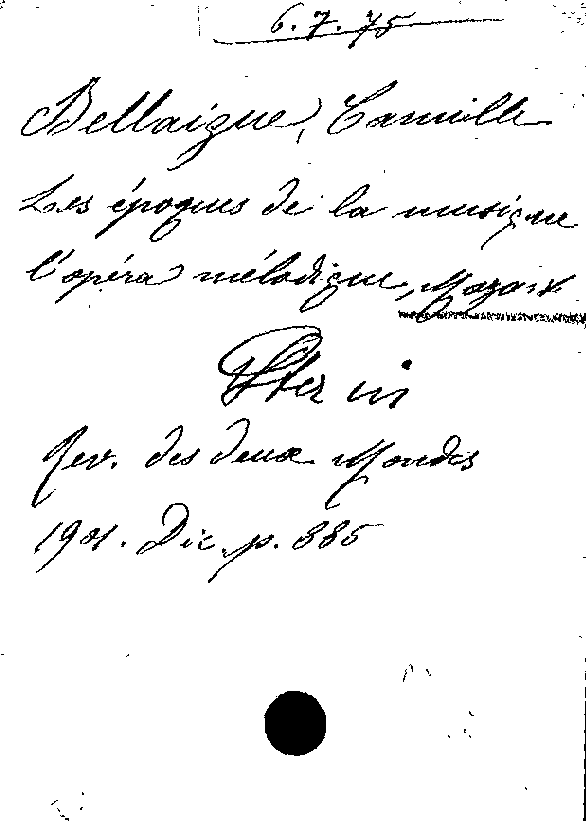 6.7.75
Bellaigue, Camille
Les époques de la musique
l'opéra mélodique, Mozart
in
Rev. des deux Mondes
1901. Dec. p. 885